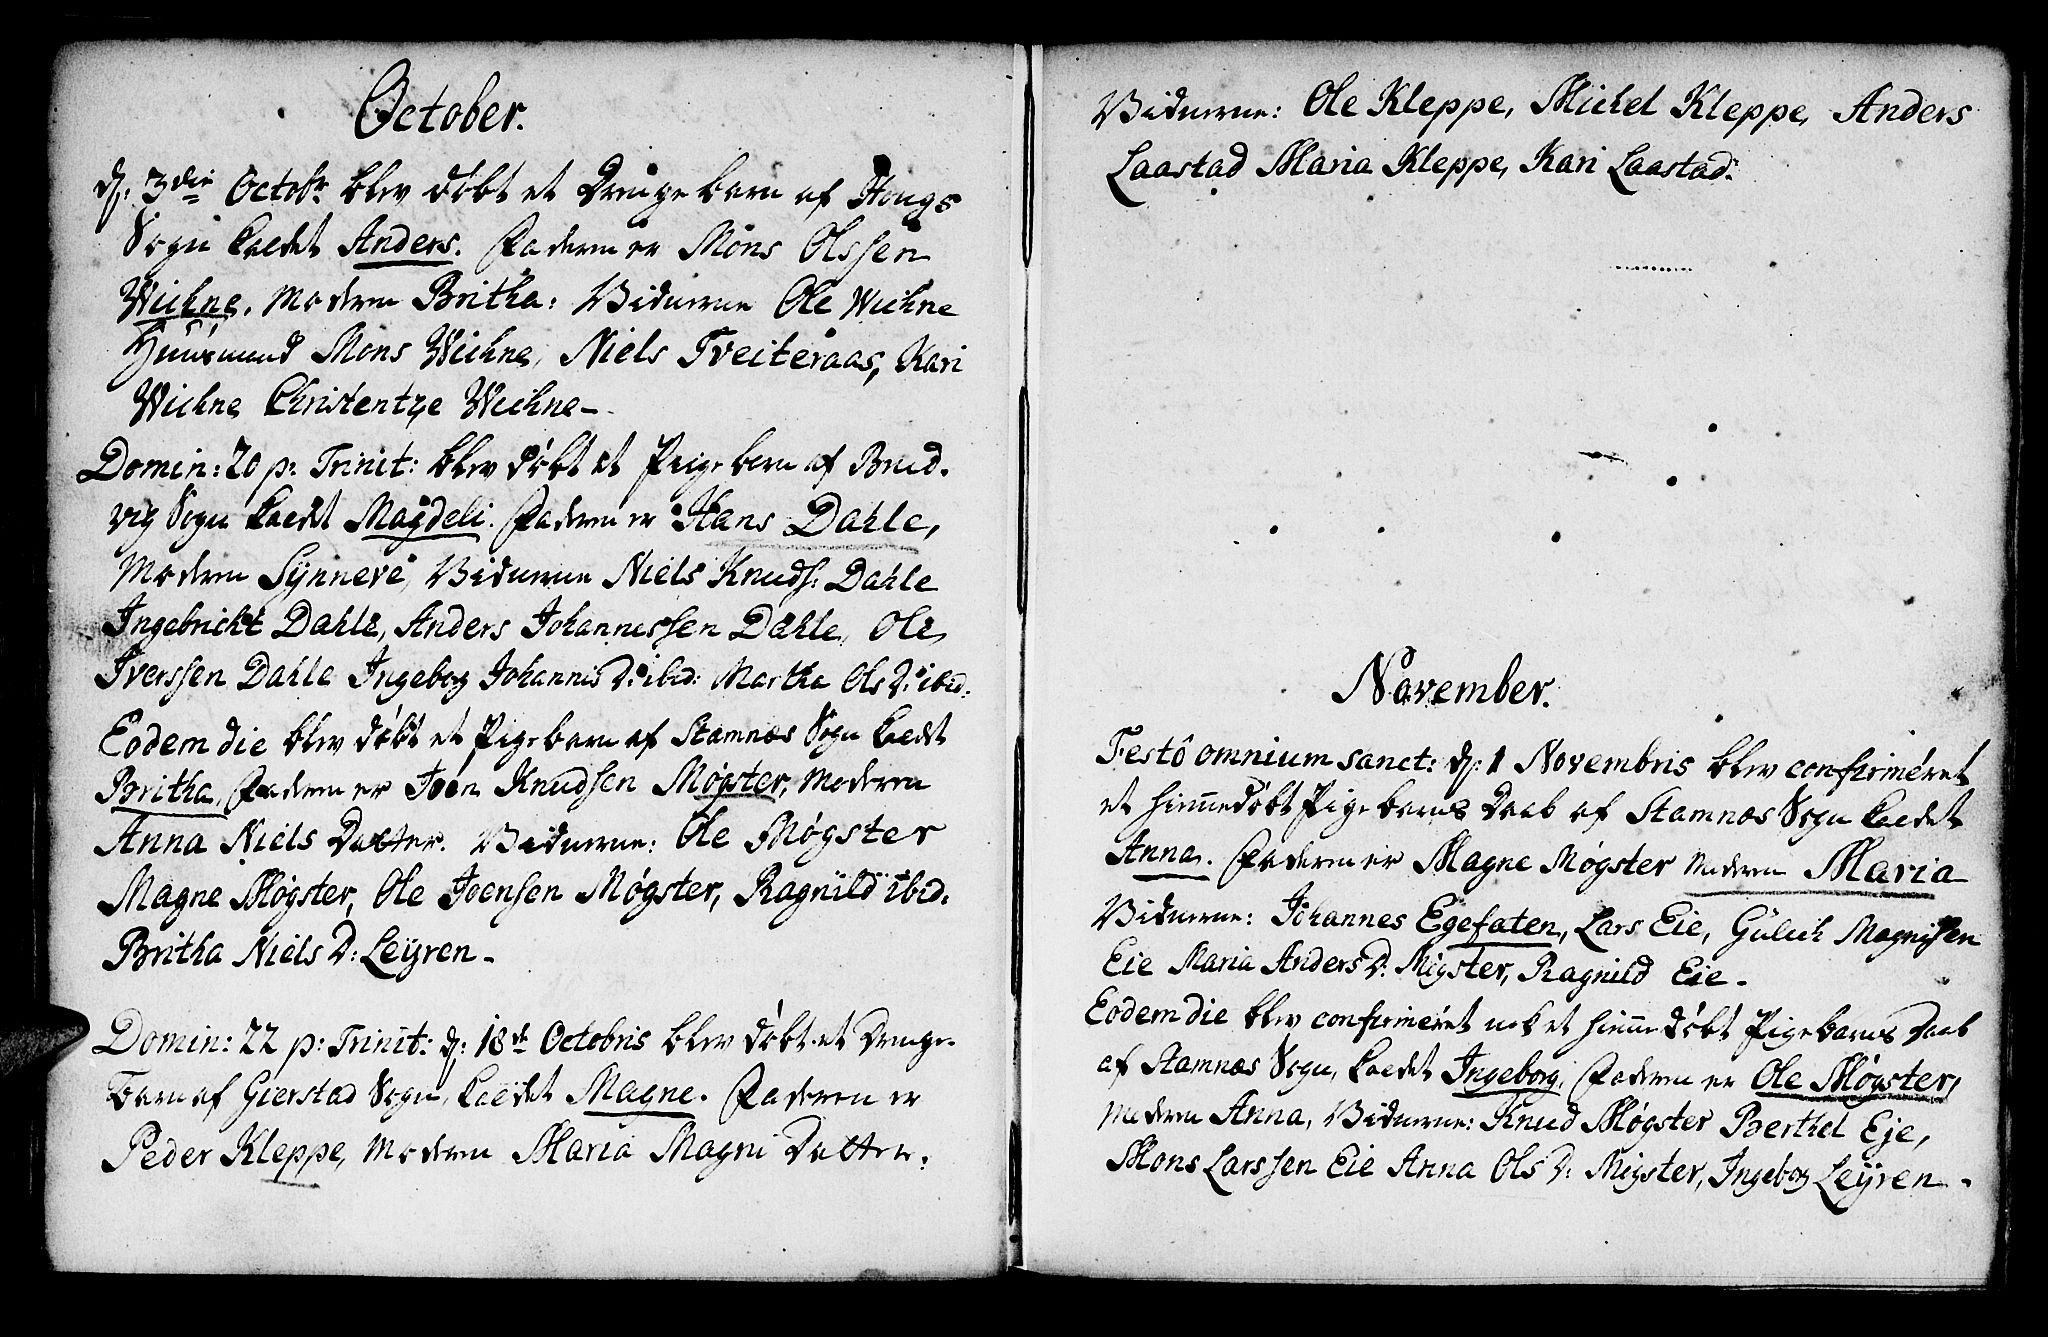 October.
d: 3die Octobr blev døbt et Drenge barn af Hougs
Sogn kaldet Anders. Faderen er Mons Olssen
Wichne. Moderen Britha: Vidnerne Ole Wichne
Huusmand Mons Wichne, Niels Tveiteraas, Kari
Wichne Christentze Wichne-
Domin: 20 p: Trinit: blev døbt et Pige barn af Brud-
vig Sogn kaldet Magdeli. Faderen er Hans Dahle,
Moderen Synneve, Vidnerne Niels Knuds: Dahle
Ingebricht Dahle, Anders Johannessen Dahle, Ole
Iverssen Dahle Ingeborg Johannis D: ibid: Martha Ols D: ibid.
Eodem die blev døbt et Pige barn af Stamnæs Sogn kaldt
Britha, Faderen er Joen Knudsen Møgster, Moderen
Anna Niels Datter. Vidnerne: Ole Møgster
Magne Møgster, Ole Joensen Møgster, Ragnild ibid.
Britha Niels D: Leyren-
Domin: 22 p: Trinit: d: 18de Octobris blev døbt et Drenge-
barn af Gierstad Sogn, kaldet Magne. Faderen er
Peder Kleppe, Moderen Maria Magni Datter.
Vidnerne: Ole Kleppe, Michel Kleppe, Anders
Laastad Maria Kleppe, Kari Laastad.
November.
Festô omnium sanct: d: 1 Novembris blev confirméret
et hiemmedøbt Pige barns Daab af Stamnæs Sogn kaldet
Anna. Faderen er Magne Møgster Moderen Maria
Vidnerne: Johannes Egefaten, Lars Eie, Gulich Magnissen
Eie Maria Anders D: Migster, Ragnild Eie-
Eodem die blev confirméret nok et hiemmedøbt Pige barns Daab
af Stamnæs Sogn, kaldet Ingeborg, Faderen er Ole Møgster,
Moderen Anna, Vidnerne: Knud Møgster Berthel Eje,
Mons Larssen Eie Anna Ols D: Migster, Ingeborg Leyren-